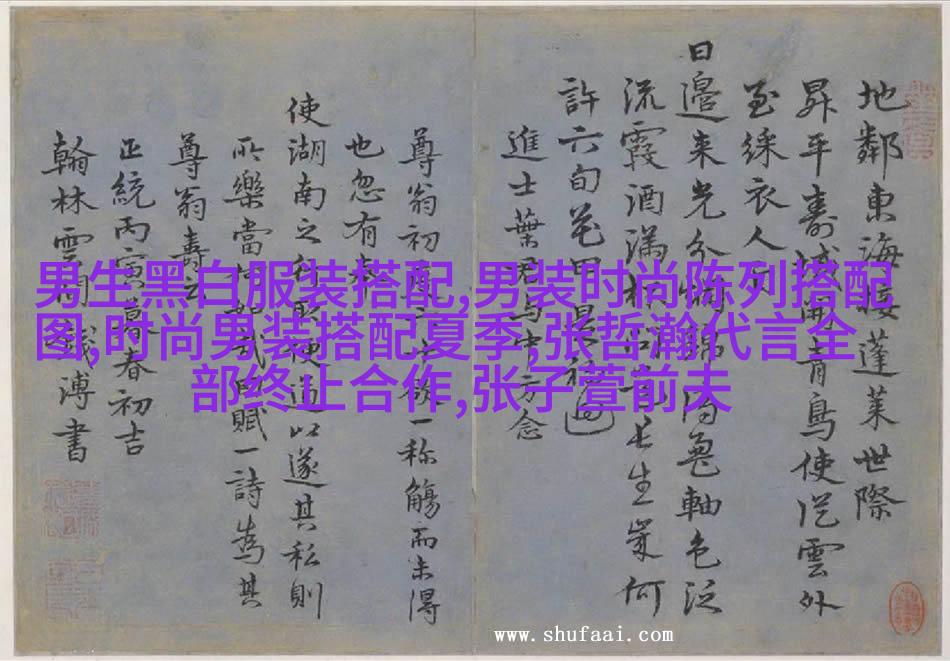 地鄰東海接蓬萊世際
昇平壽域開青鳥使從雲外
至綵衣人向
日邊來光分 錦 軸色泛
流霞酒滿杯 長生歲何
許六旬花甲是初迴
進士葉君 中方念
尊翁初度 欲一称觴而未得
也忽有
使湖南之行取便道以遂其私則
所樂當何如哉因賦一詩為其
尊翁壽云
正統丙寅暮春初吉
翰林雲間錢溥書
男生黑白服装搭配,男装时尚陈列搭配
图,时尚男装搭配夏季,张哲瀚代言全
部终止合作,张子萱前夫
www.shufaai.com